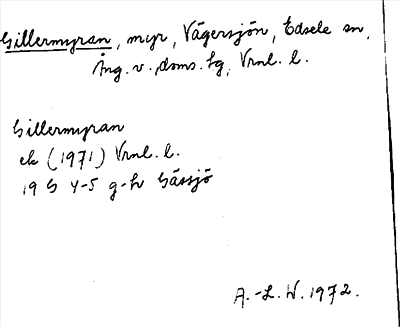 Gillermyran, myr, Vågersjön, Edsele sn,
Ång. v. doms. fg, Vrnl. l.
Gillermyran
ek (1971) Vrnl. l.
19 G 4-5 g-h Gässjö
A.-L. W. 1972.